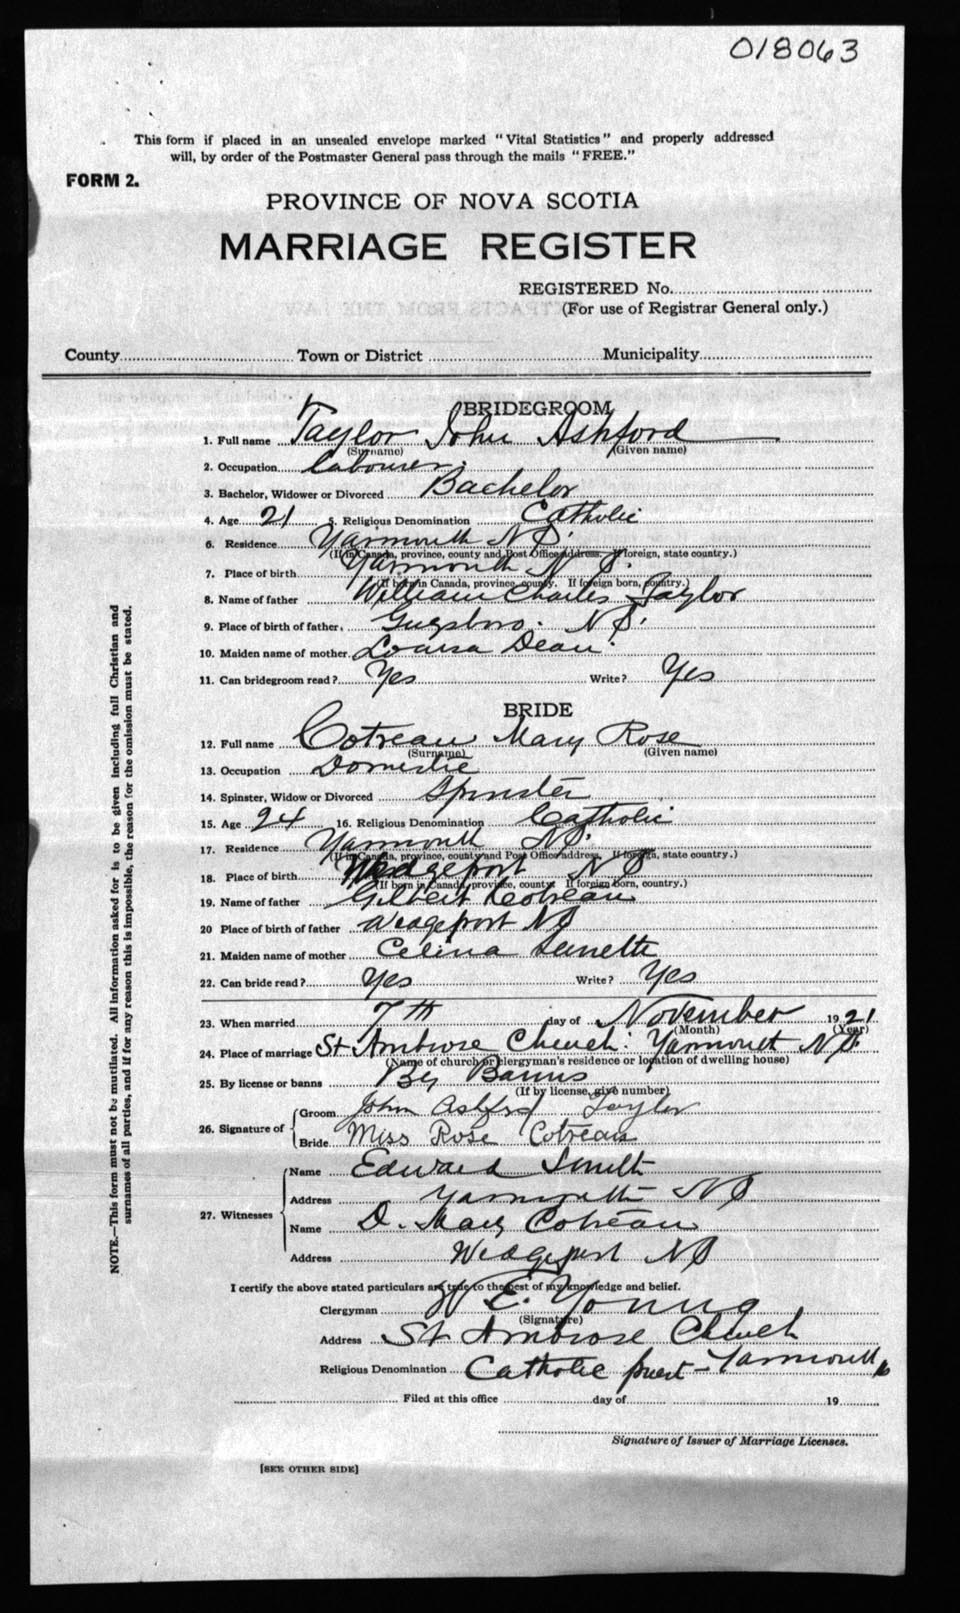 018063
This form if placed in an unsealed envelope marked "Vital Statistics" and properly addressed
will, by order of the Postmaster General pass through the mails "FREE."
FORM 2.
PROVINCE OF NOVA SCOTIA
MARRIAGE REGISTER
REGISTERED No.
(For use of Registrar General only.)
County Town or District Municipality
BRIDEGROOM
1. Full name Taylor John Ashford
(Surname) (Given name)
2. Occupation Labourer
3. Bachelor, Widower or Divorced Bachelor
4. Age 21 5. Religious Denomination Catholic
6. Residence Yarmouth N S.
(If in Canada, province, county and Post Office address. If foreign, state country.)
7. Place of birth Yarmouth N S.
(If born in Canada, province, county. If foreign born, country.)
8. Name of father William Charles Taylor
9. Place of birth of father. Guysboro. N S.
10. Maiden name of mother Louisa Dean
11. Can bridegroom read? Yes Write? Yes
BRIDE
12. Full name Cotreau Mary Rose
(Surname) (Given name)
13. Occupation Domestic
14. Spinster, Widow or Divorced Spinster
15. Age 24 16. Religious Denomination Catholic
17. Residence Yarmouth NS.
(If in Canada, province, county and Post Office address. If foreign, state country.)
18. Place of birth Wedgeport NS
(If born in Canada, province, county. If foreign born, country.)
19. Name of father Gilbert Cotreau
20 Place of birth of father Wedgeport NS
21. Maiden name of mother Celina
22. Can bride read? Yes Write? Yes
23. When married 7th day of November 1921
(Month) (Year)
24. Place of marriage St Ambrose Church. Yarmouth NS.
(Name of church or clergyman's residence or location of dwelling house)
25. By license or banns By Banns
(If by license, give number)
26. Signature of
Groom John Ashford Taylor
Bride Miss Rose Cotreau
27. Witnesses
Name Edward
Address Yarmouth NS
Name D. Mary Cotreau
Address Wedgeport NS
I certify the above stated particulars are true to the best of my knowledge and belief.
Clergyman W E. Young
(Signature)
Address St Ambrose Church
Religious Denomination Catholic priest - Yarmouth
Filed at this office day of 19
Signature of Issuer of Marriage Licenses.
[SEE OTHER SIDE]
NOTE.—This form must not be mutilated. All information asked for is to be given including full Christian and
surnames of all parties, and if for any reason this is impossible, the reason for the omission must be stated.